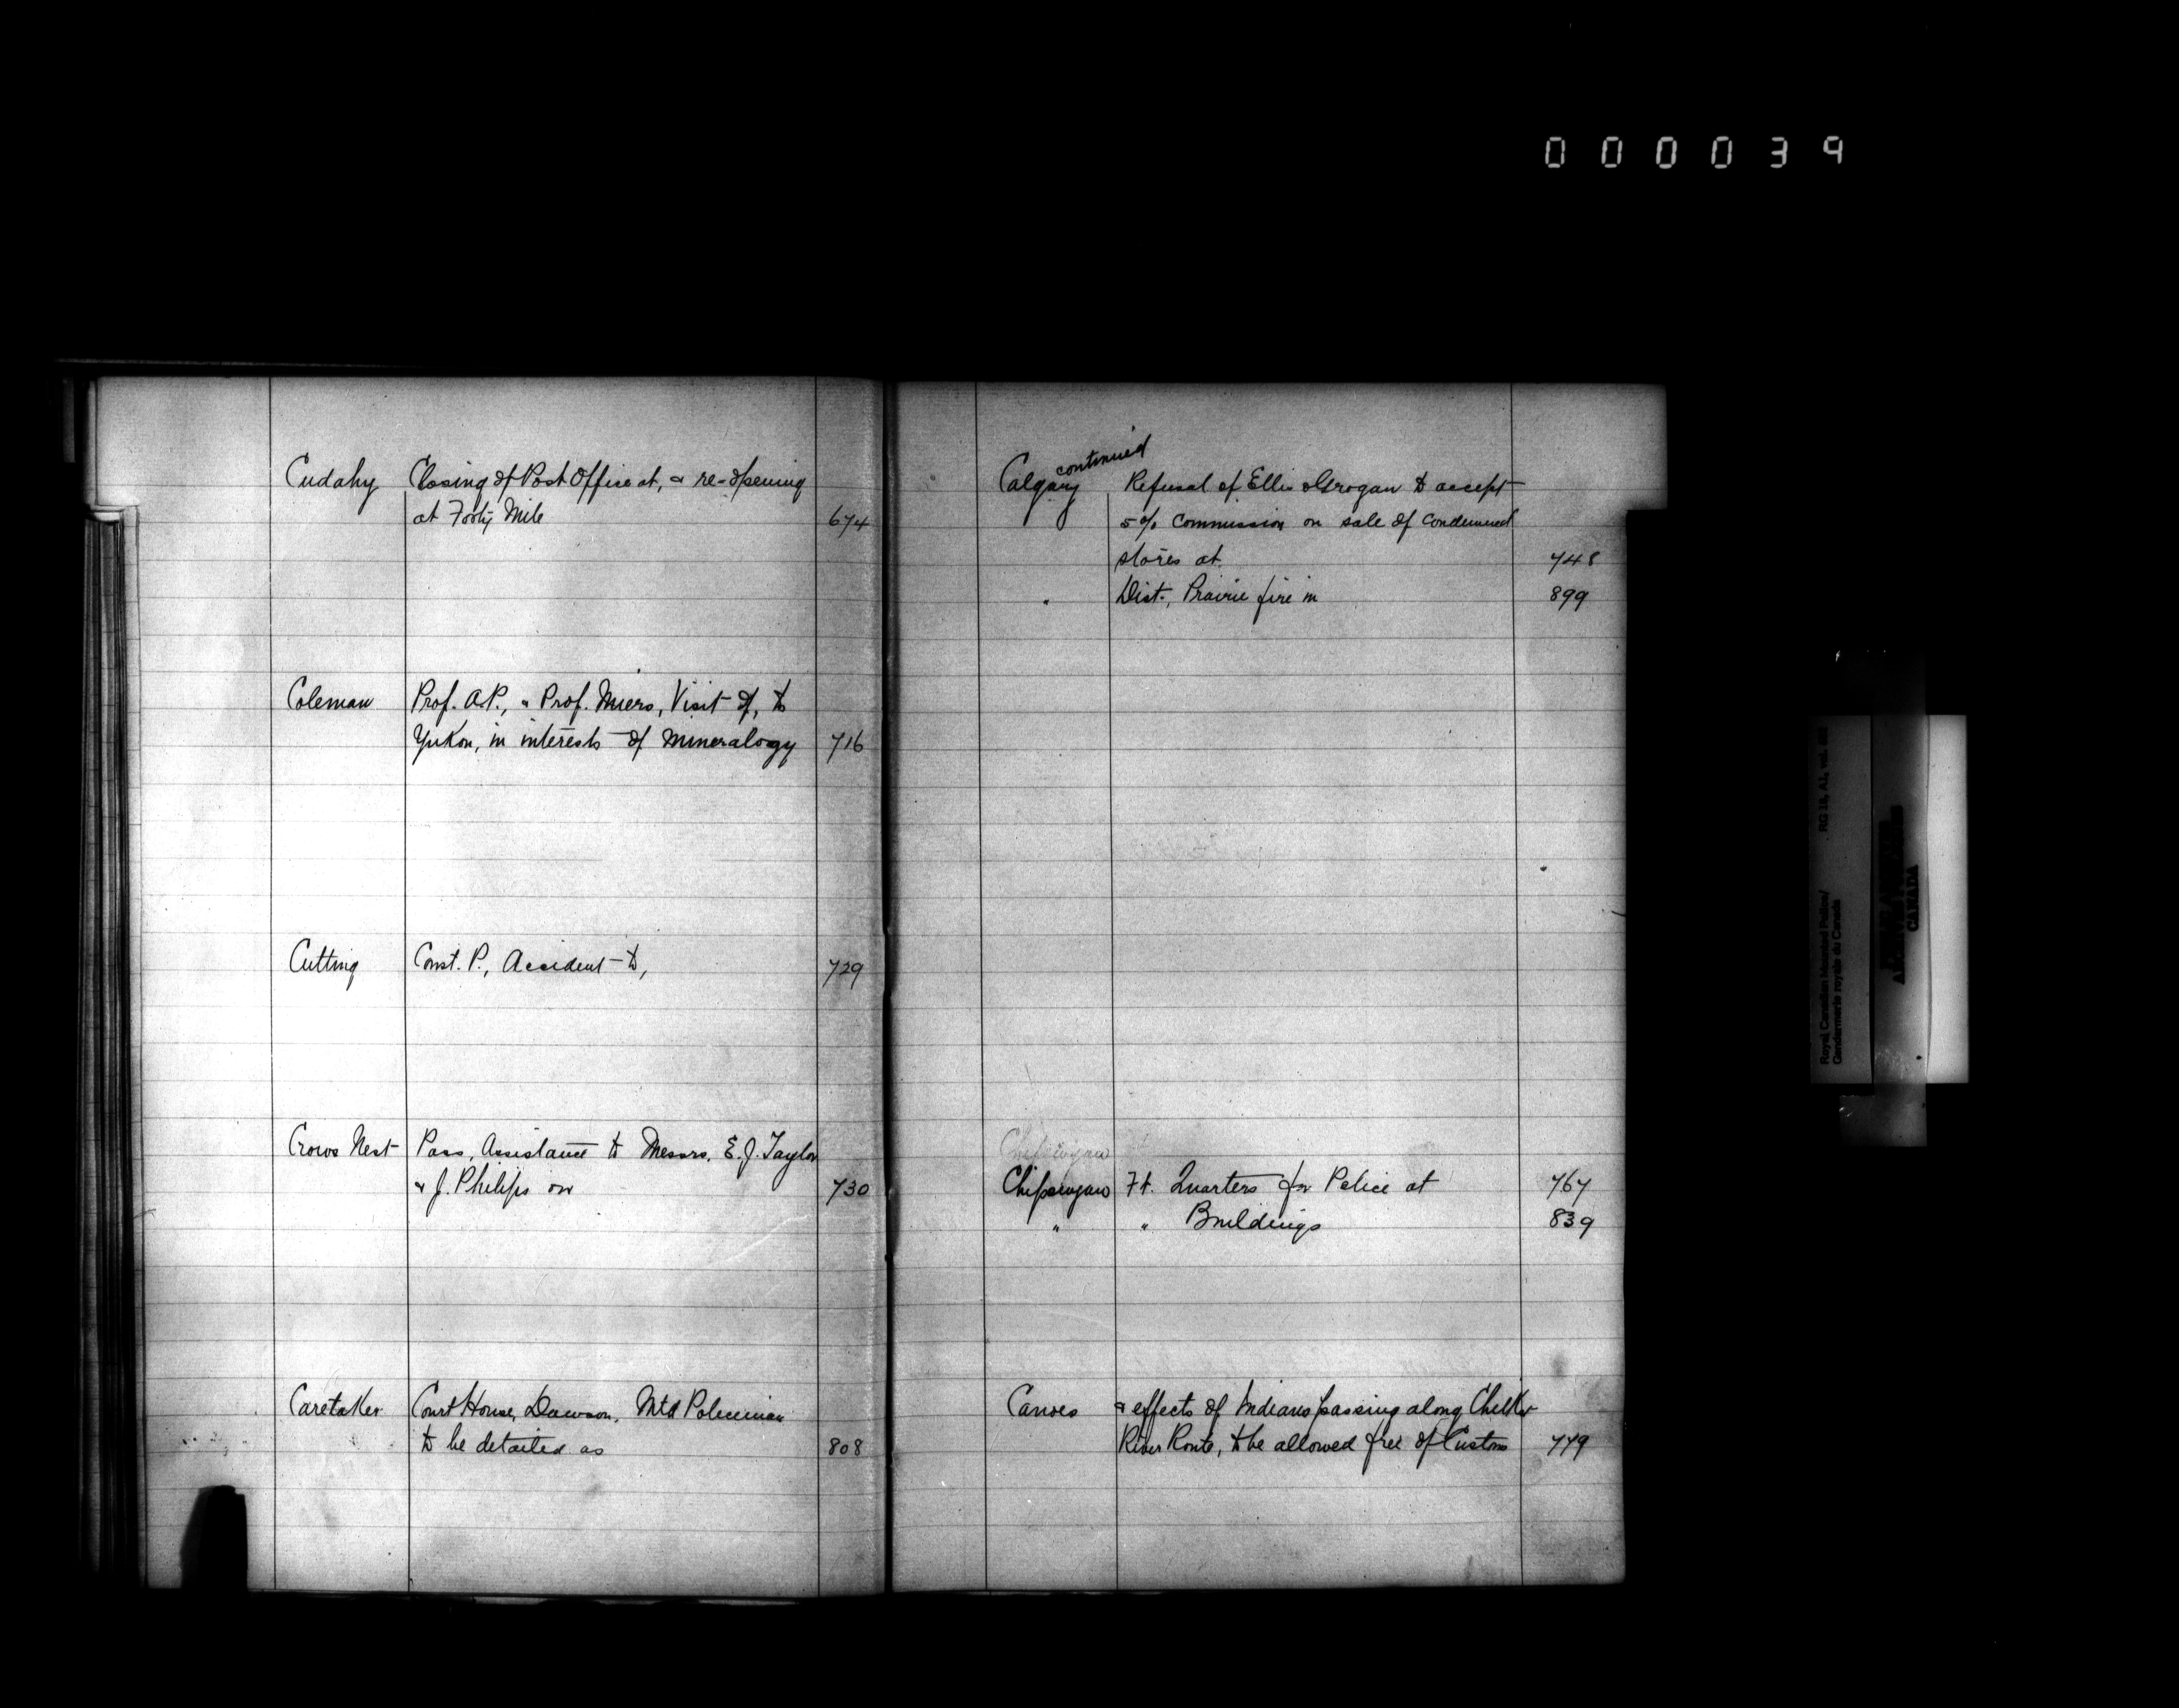 000039
Cudahy Closing of Post Office at, & re-opening
at Forty Mile 674
Coleman Prof. A.P., " Prof. Miers, Visit of, to
Yukon, in interests of Mineralogy 716
Cutting Const. P., Accident to, 729
Crows Nest Pass, Assistance to Messrs. E. J. Taylor
& J. Philips on 730
Caretaker Court House, Dawson, Mtd Policeman
to be detailed as 808
continued
Calgary Refusal of Ellis & Grogan to accept
5% Commission on sale of condemned
stores at 748
" Dist., Prairie fire in 899
Chipewyan
Chipewyan Ft. Quarters for Police at 767
" " Buildings 839
Canoes & effects of Indians passing along Chelkr
River Route, to be allowed free of Customs 779
Royal Canadian Mounted Police/
Gendarmerie royale du Canada
RG 18, A1, vol.
CANADA